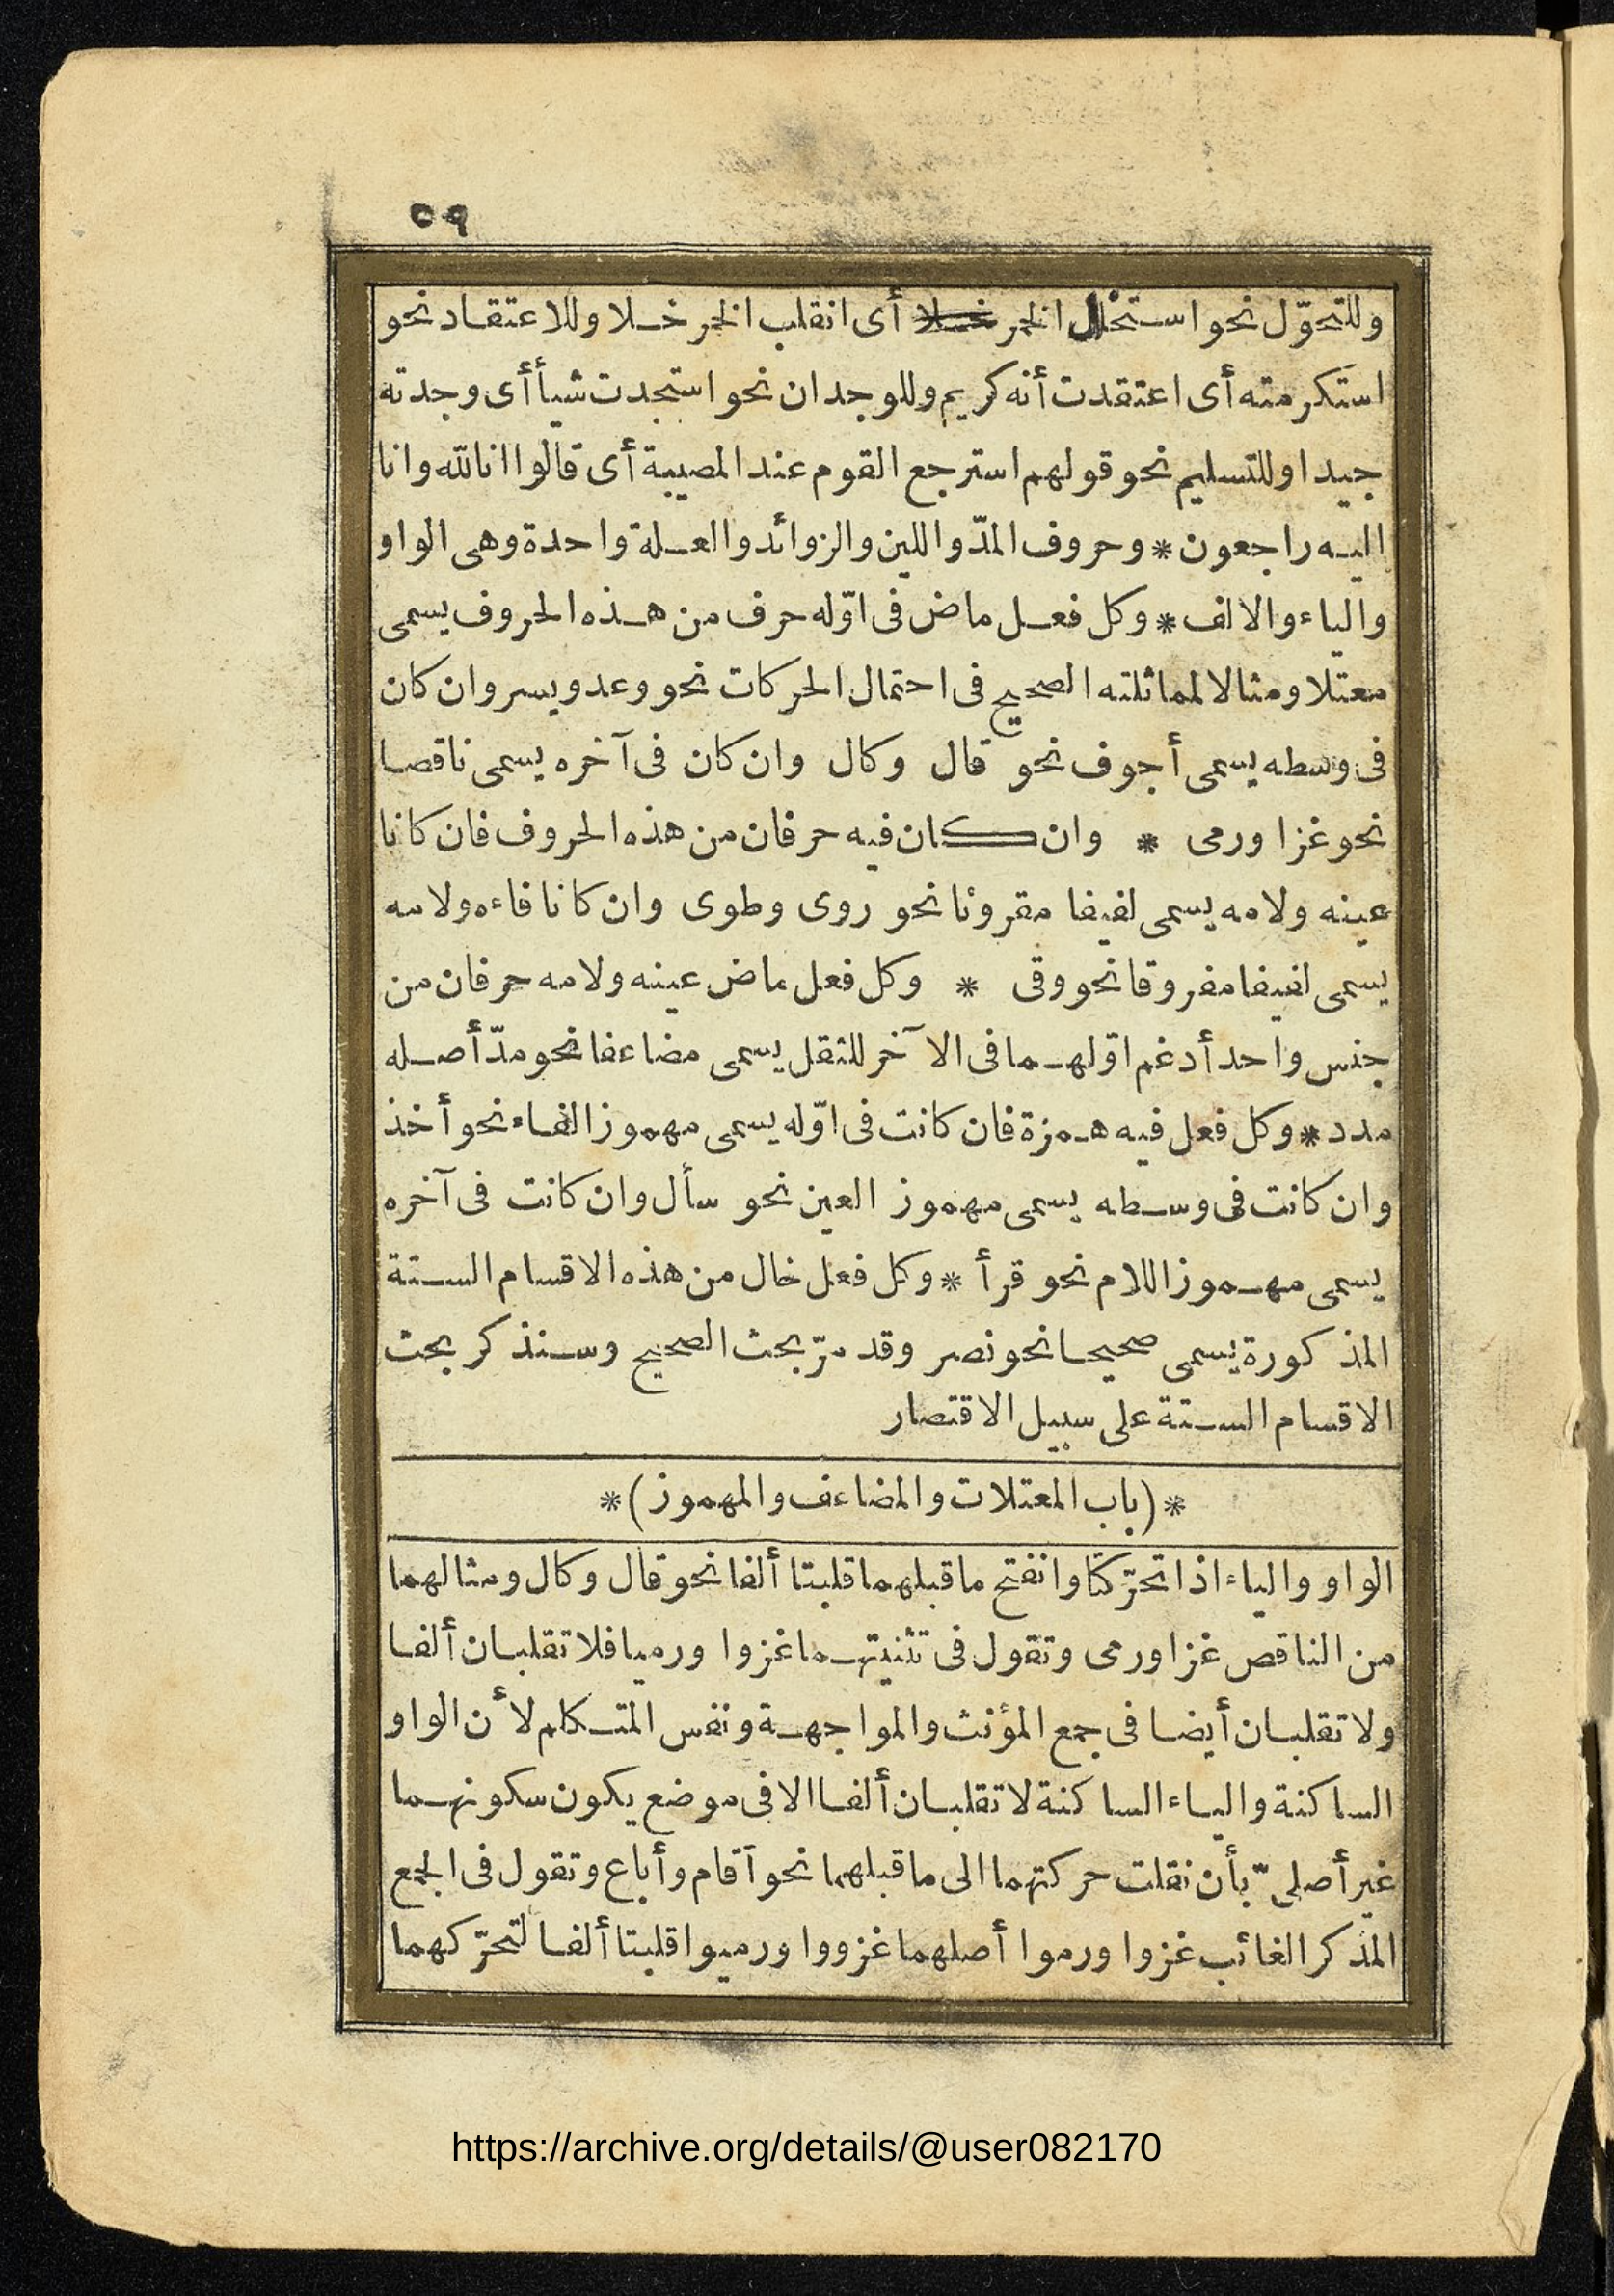 ٥٩
وللتحوّل نحو استخلل الخمر خلا أى انقلب الخمر خلا وللاعتقاد نحو
استكرمته أى اعتقدت أنه كريم وللوجدان نحو استجدت شيأ أى وجدته
جيدا وللتسليم نحو قولهم استرجع القوم عند المصيبة أى قالوا انا لله وانا
اليه راجعون * وحروف المدّ واللين والزوائد والعلة واحدة وهى الواو
والياء والالف * وكل فعل ماض فى اوّله حرف من هذه الحروف يسمى
معتلا ومثالا لمماثلته الصحيح فى احتمال الحركات نحو وعد ويسر وان كان
فى وسطه يسمى أجوف نحو قال وكال وان كان فى آخره يسمى ناقصا
نحو غزا ورمى * وان كان فيه حرفان من هذه الحروف فان كانا
عينه ولامه يسمى لفيفا مقرونا نحو روى وطوى وان كانا فاءه ولامه
يسمى لفيفا مفروقا نحو وقى * وكل فعل ماض عينه ولامه حرفان من
جنس واحد أدغم اوّلهما فى الآخر للثقل يسمى مضاعفا نحو مدّ أصله
مدد * وكل فعل فيه همزة فان كانت فى اوّله يسمى مهموز الفاء نحو أخذ
وان كانت فى وسطه يسمى مهموز العين نحو سأل وان كانت فى آخره
يسمى مهموز اللام نحو قرأ * وكل فعل خال من هذه الاقسام الستة
المذكورة يسمى صحيحا نحو نصر وقد مرّ بحث الصحيح وسنذكر بحث
الاقسام الستة على سبيل الاقتصار
*(باب المعتلات والمضاعف والمهموز)*
الواو والياء اذا تحرّكتا وانفتح ما قبلهما قلبتا ألفا نحو قال وكال ومثالهما
من الناقص غزا ورمى وتقول فى تثنيتهما غزوا ورميا فلا تقلبان ألفا
ولا تقلبان أيضا فى جمع المؤنث والمواجهة ونفس المتكلم لأن الواو
الساكنة والياء الساكنة لا تقلبان ألفا الا فى موضع يكون سكونهما
غير أصلىّ بأن نقلت حركتهما الى ما قبلهما نحو أقام وأباع وتقول فى الجمع
المذكر الغائب غزوا ورموا أصلهما غزووا ورميوا قلبتا ألفا لتحرّكهما
https://archive.org/details/@user082170